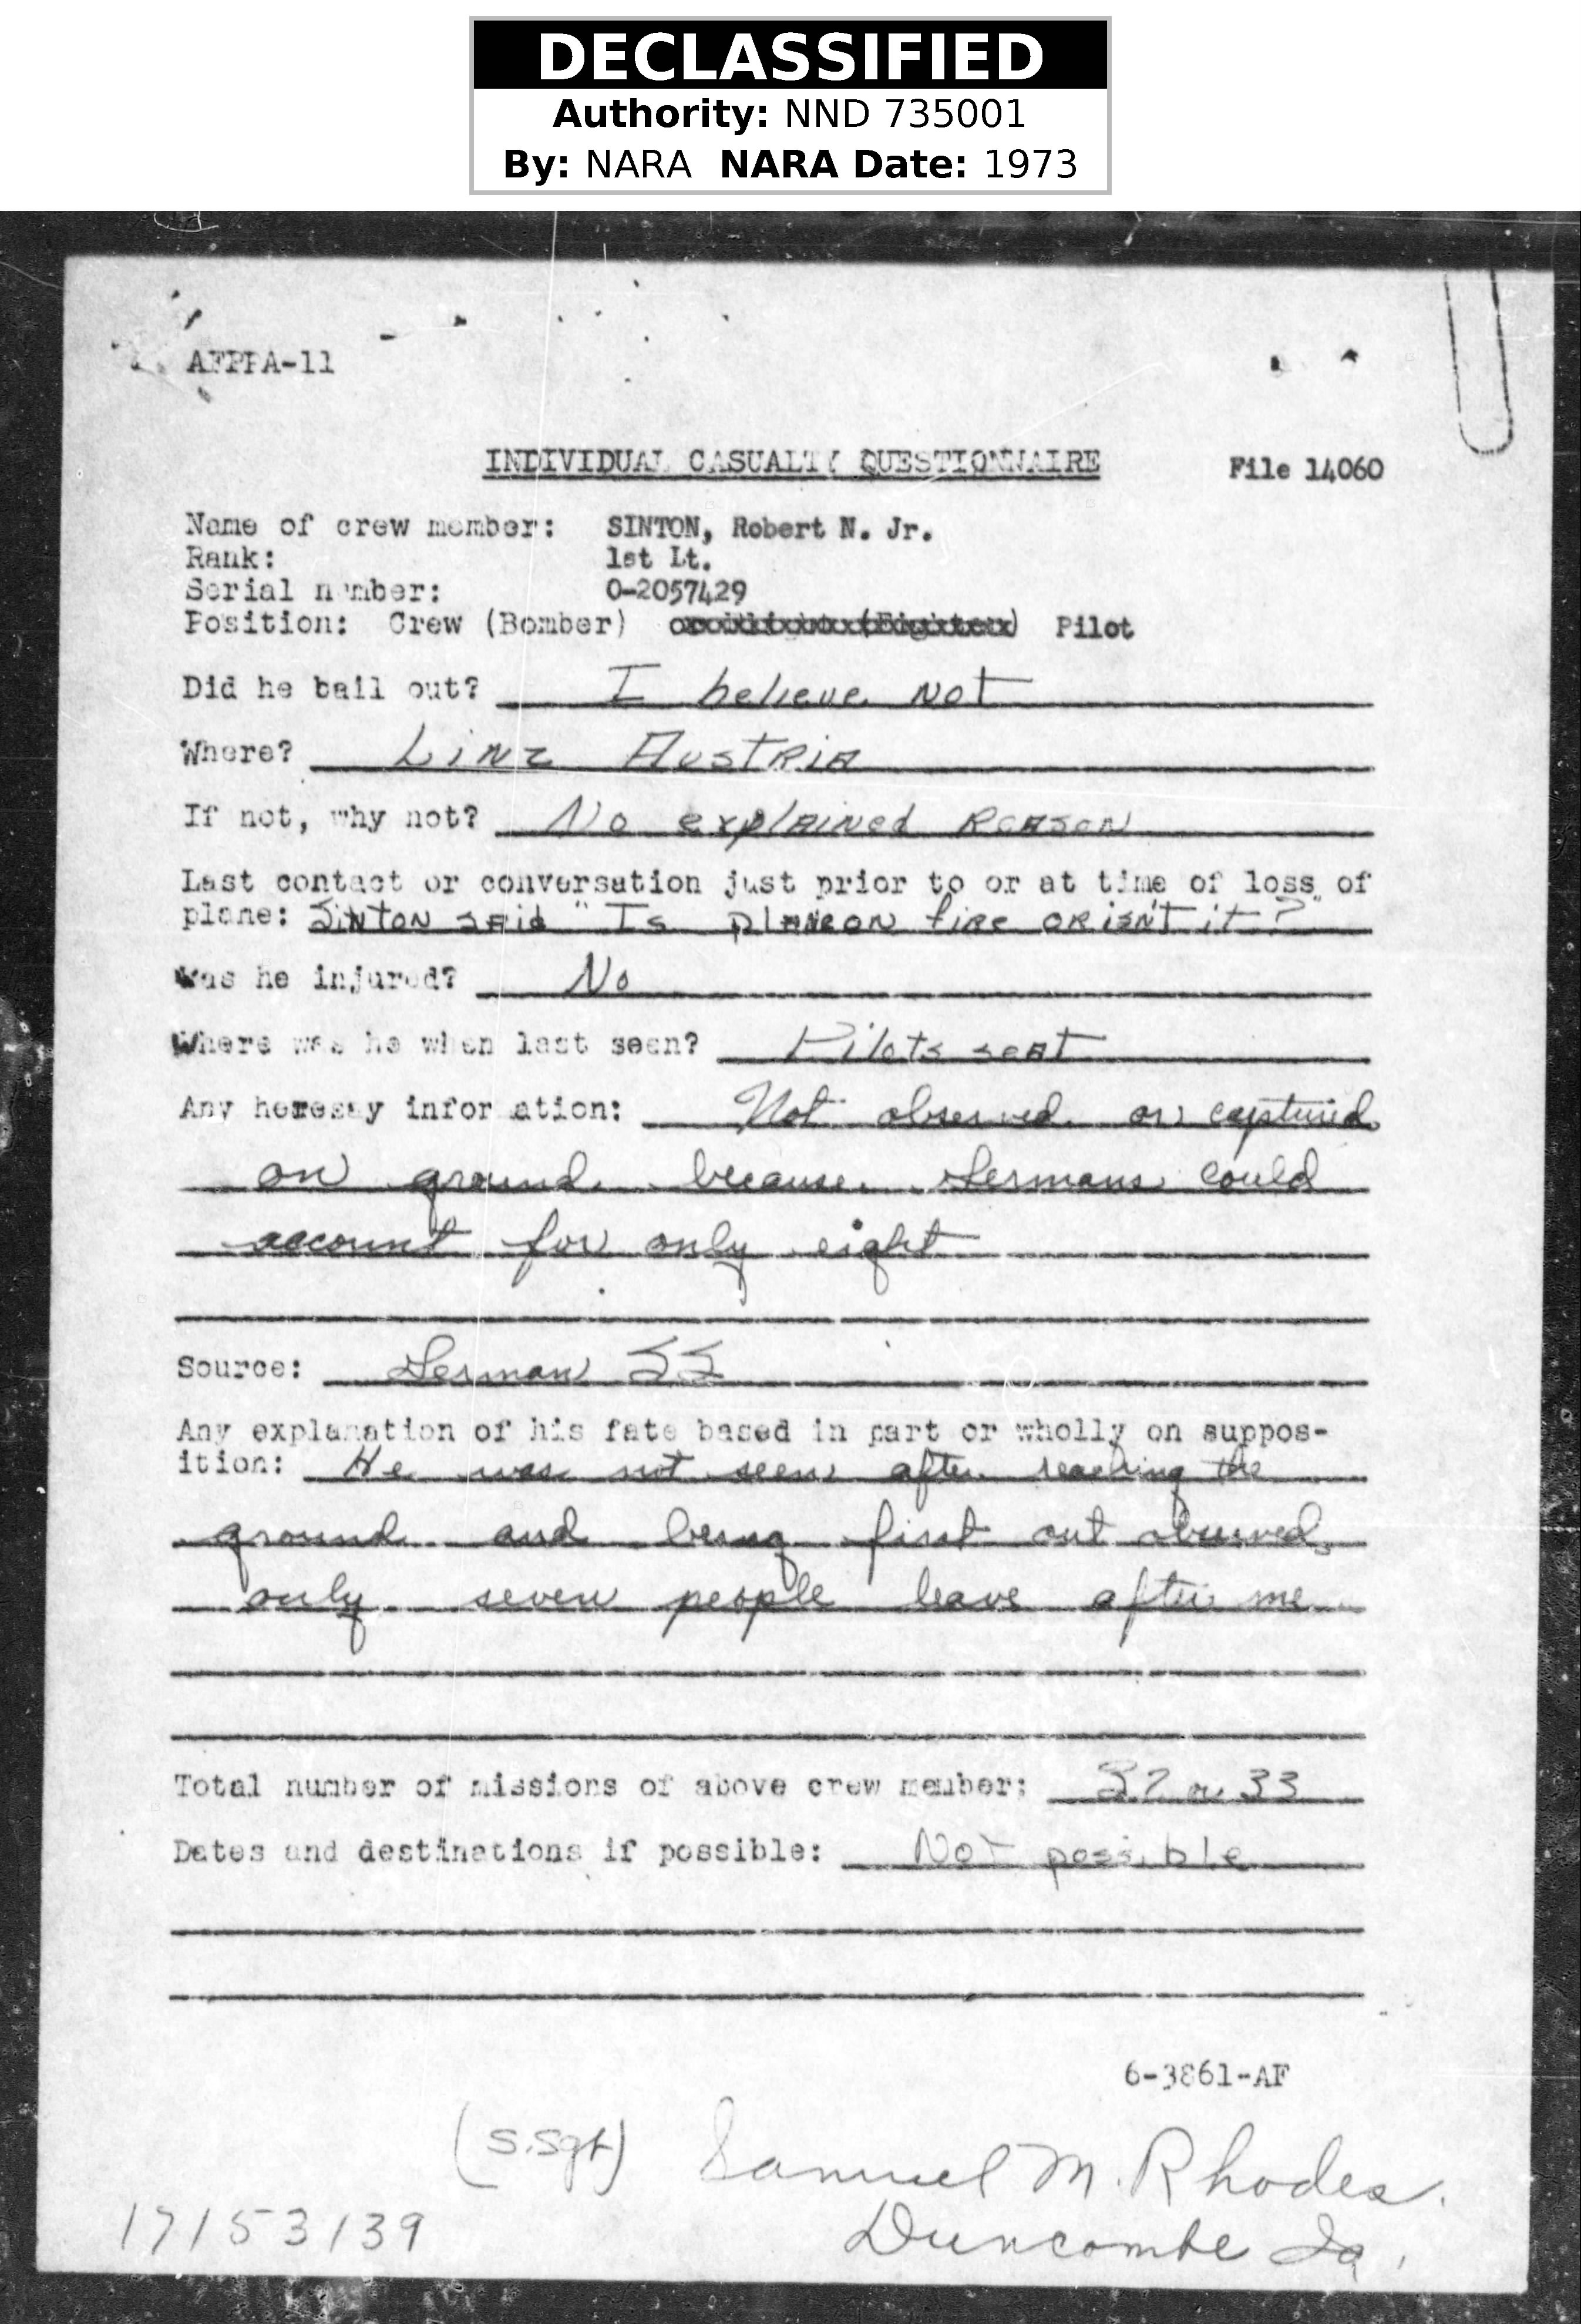 DECLASSIFIED
Authority: NND 735001
By: NARA NARA Date: 1973
AFPPA-11
INDIVIDUAL CASUALTY QUESTIONNAIRE
File 14060
Name of crew member: SINTON, Robert N. Jr.
Rank: 1st Lt.
Serial number: 0-2057429
Position: Crew (Bomber) Pilot
Did he bail out? I believe not
Where? Linz Austria
If not, why not? No explained Reason
Last contact or conversation just prior to or at time of loss of
plane: Sinton said "Is plane on fire or isn't it?"
Was he injured? No
Where was he when last seen? Pilots seat
Any heresay information: Not observed or captured
on ground because Germans could
account for only eight
Source: German SS
Any explanation of his fate based in part or wholly on suppos-
ition: He was not seen after reaching the
ground and being first out observed
only seven people leave after me
Total number of missions of above crew member: or 33
Dates and destinations if possible: Not possible
6-3861-AF
(S.Sgt) Samuel M. Rhodes.
17153139
Duncombe Ia.